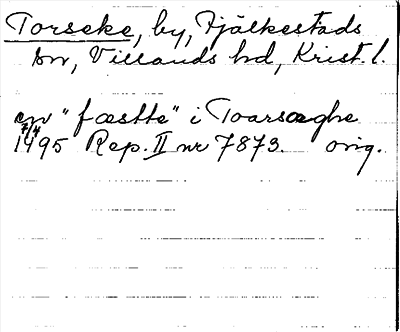 Torseke, by, Fjälkestads
sn, Villands hd, Krist. l.
en "fæstte" i Toarsæghe
7/4
1495 Rep. II nr 7873. orig.